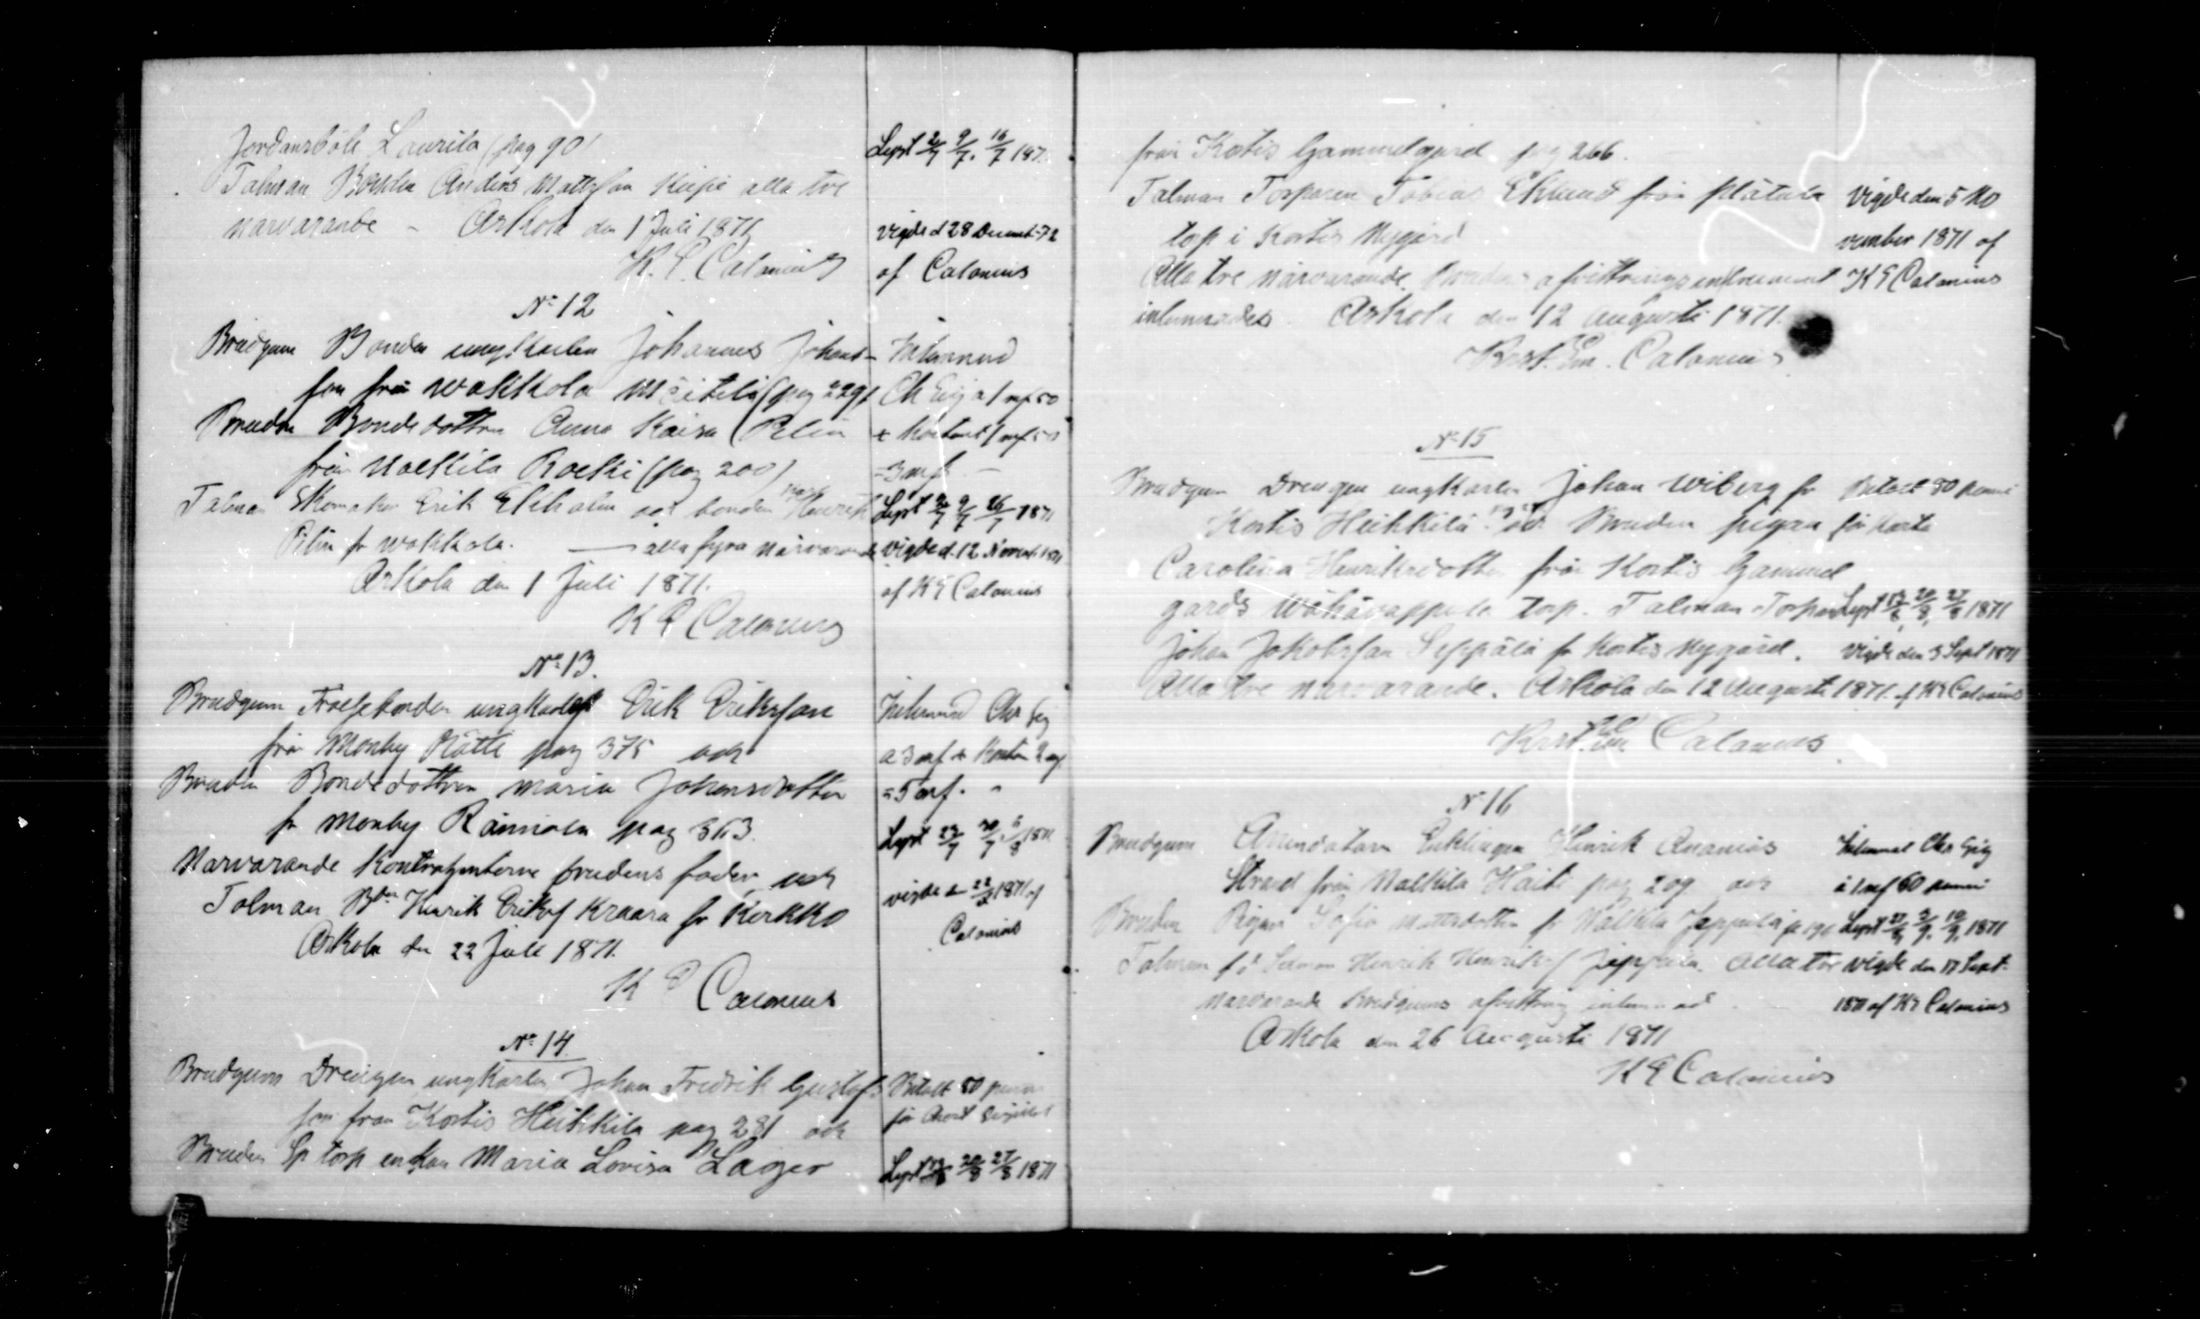 Jordansböle Laurila (pag 90)
Talman Bonden Anders Mattsson Kiepi alla tre
närvarande – Askola den 1 Juli 1871
K. E. Calonius
Lyst 2/7 9/7 16/7 187
vigde d 28 Decemb -72
af Calonius
No 12
Brudgum Bonden ungkarlen Johannes Johans-
son från Wakkola (pag 229)
Bruden Bondedottren Anna Kaisa Pelin
från Nalkila Roekki (pag 200)
Talman Skomakar Erik Ekholm och bonden Henrik
Pelin fr Wakkola. — alla fyra närvarande
Askola den 1 Juli 1871.
K E Calonius
Inlemnad
+ Kortent 1 mf 50
= 3 mf. –
Lyst 2/7 9/7 16/7 1871
vigde d. 12 Novemb 1871
af K E Calonius
No 13.
Brudgum ungkarlen Erik Eriksson
från Monby Rätti pag 375 och
Bruden Bondedottren Maria Johansdotter
fr Monby Rännola pag 363.
Närvarande Kontrahenterne brudens fader och
Talman Bdn Henrik Eriksf Kraara fr Kerkko
Askola den 22 Juli 1871.
K E Calonius
Inlemnad Chs
a 3 mf + Korten 2 mf
= 5 mf. –
Lyst 23/7 30/7 6/8 1871
vigde d 1871 af
Calonius
No 14
Brudgum Drengen ungkarlen Johan Fredrik Gustafs
son från Kortis Heikkilä pag 281 och
Bruden Sp torp enkan Maria Lovisa Lager
Betalt 80 penni
för
Lyst 13/8 20/8 27/8 1871
från Kortis Gammelgård pag 266.
Talman Torparen Tobias Eklund från Plätula
torp i Kortis Nygård
Alla tre närvarande. afvittringsinstrument
inlemnades. Askola den 12 Augusti 1871.
Krist. Em. Calonius
vigde den 5 No
vember 1871 af
K E Calonius
No 15
Brudgum Drengen ungkarlen Johan Wiberg fr
Kortis Heikkilä och Bruden pigan
Carolina Henriksdotter från Kortis Gammel
gårds torp. Talman Torparen
Johan Jakobsson Seppälä fr Kortis Nygård.
Alla tre närvarande. Askola den 12 Augusti 1871.
Krist. Em Calonius
Betalt 80 penni
för
Lyst 13/8 20/8 27/8 1871
vigde den 3 Sept 1871
af K E Calonius
No 16
Brudgum Arrendatorn Enklingen Henrik Ananias
Strand från Nalkila Haiti pag 209 och
Bruden Pigan Sofia Mattsdotter fr Nalkila Jeppilä p 190
Talman Henrik Henriksf Jeppilä. Alla tre
närvarande Brudgums afvittring inlemnad
Askola den 26 Augusti 1871
K E Calonius
Inlemnad Chs
à 1 mf 60 penni
Lyst 27/8 3/9 10/9 1871
vigde den 17 Sept
1871 af K E Calonius